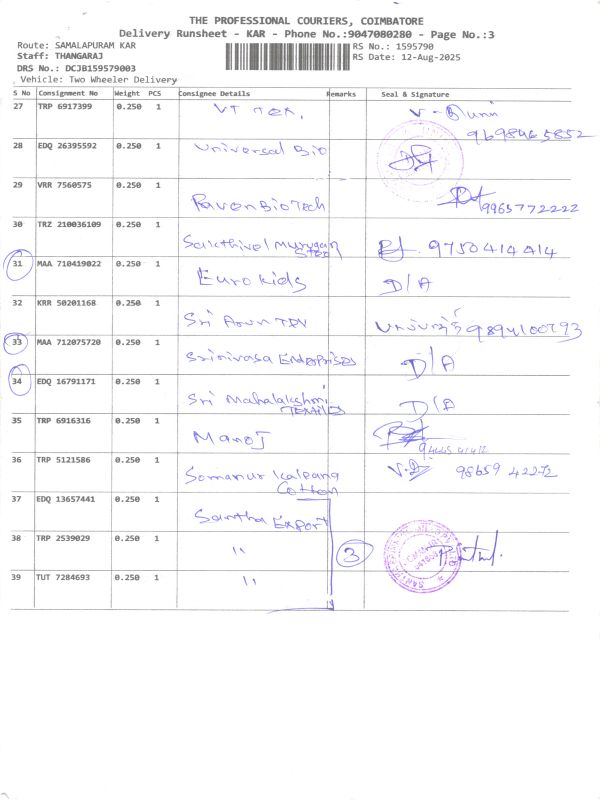 THE PROFESSIONAL COURIERS, COIMBATORE
Delivery Runsheet - KAR - Phone No.:9047080280 - Page No.:3
Route: SAMALAPURAM KAR
RS No.: 1595790
Staff: THANGARAJ
RS Date: 12-Aug-2025
DRS No.: DCJB159579003
Vehicle: Two Wheeler Delivery
S No Consignment No Weight PCS Consignee Details Remarks Seal & Signature
27 TRP 6917399 0.250 1 VT Tex.
9698465852
28 EDQ 26395592 0.250 1 Universal Bio
29 VRR 7560575 0.250 1 RavenBioTech 9965772222
30 TRZ 210036109 0.250 1 Sakthivel Murugan 9750414414
31 MAA 710419022 0.250 1 Euro kids D/A
32 KRR 50201168 0.250 1 Sri Arun Tex 9894100793
33 MAA 712075720 0.250 1 Srinivasa Enterprises D/A
34 EDQ 16791171 0.250 1 Sri Mahalakshmi Textiles D/A
35 TRP 6916316 0.250 1 Manoj
36 TRP 5121586 0.250 1 Somanur Kaleang Cotton 98659 42272
37 EDQ 13657441 0.250 1 Santha Export
38 TRP 2539029 0.250 1 " 3
39 TUT 7284693 0.250 1 "